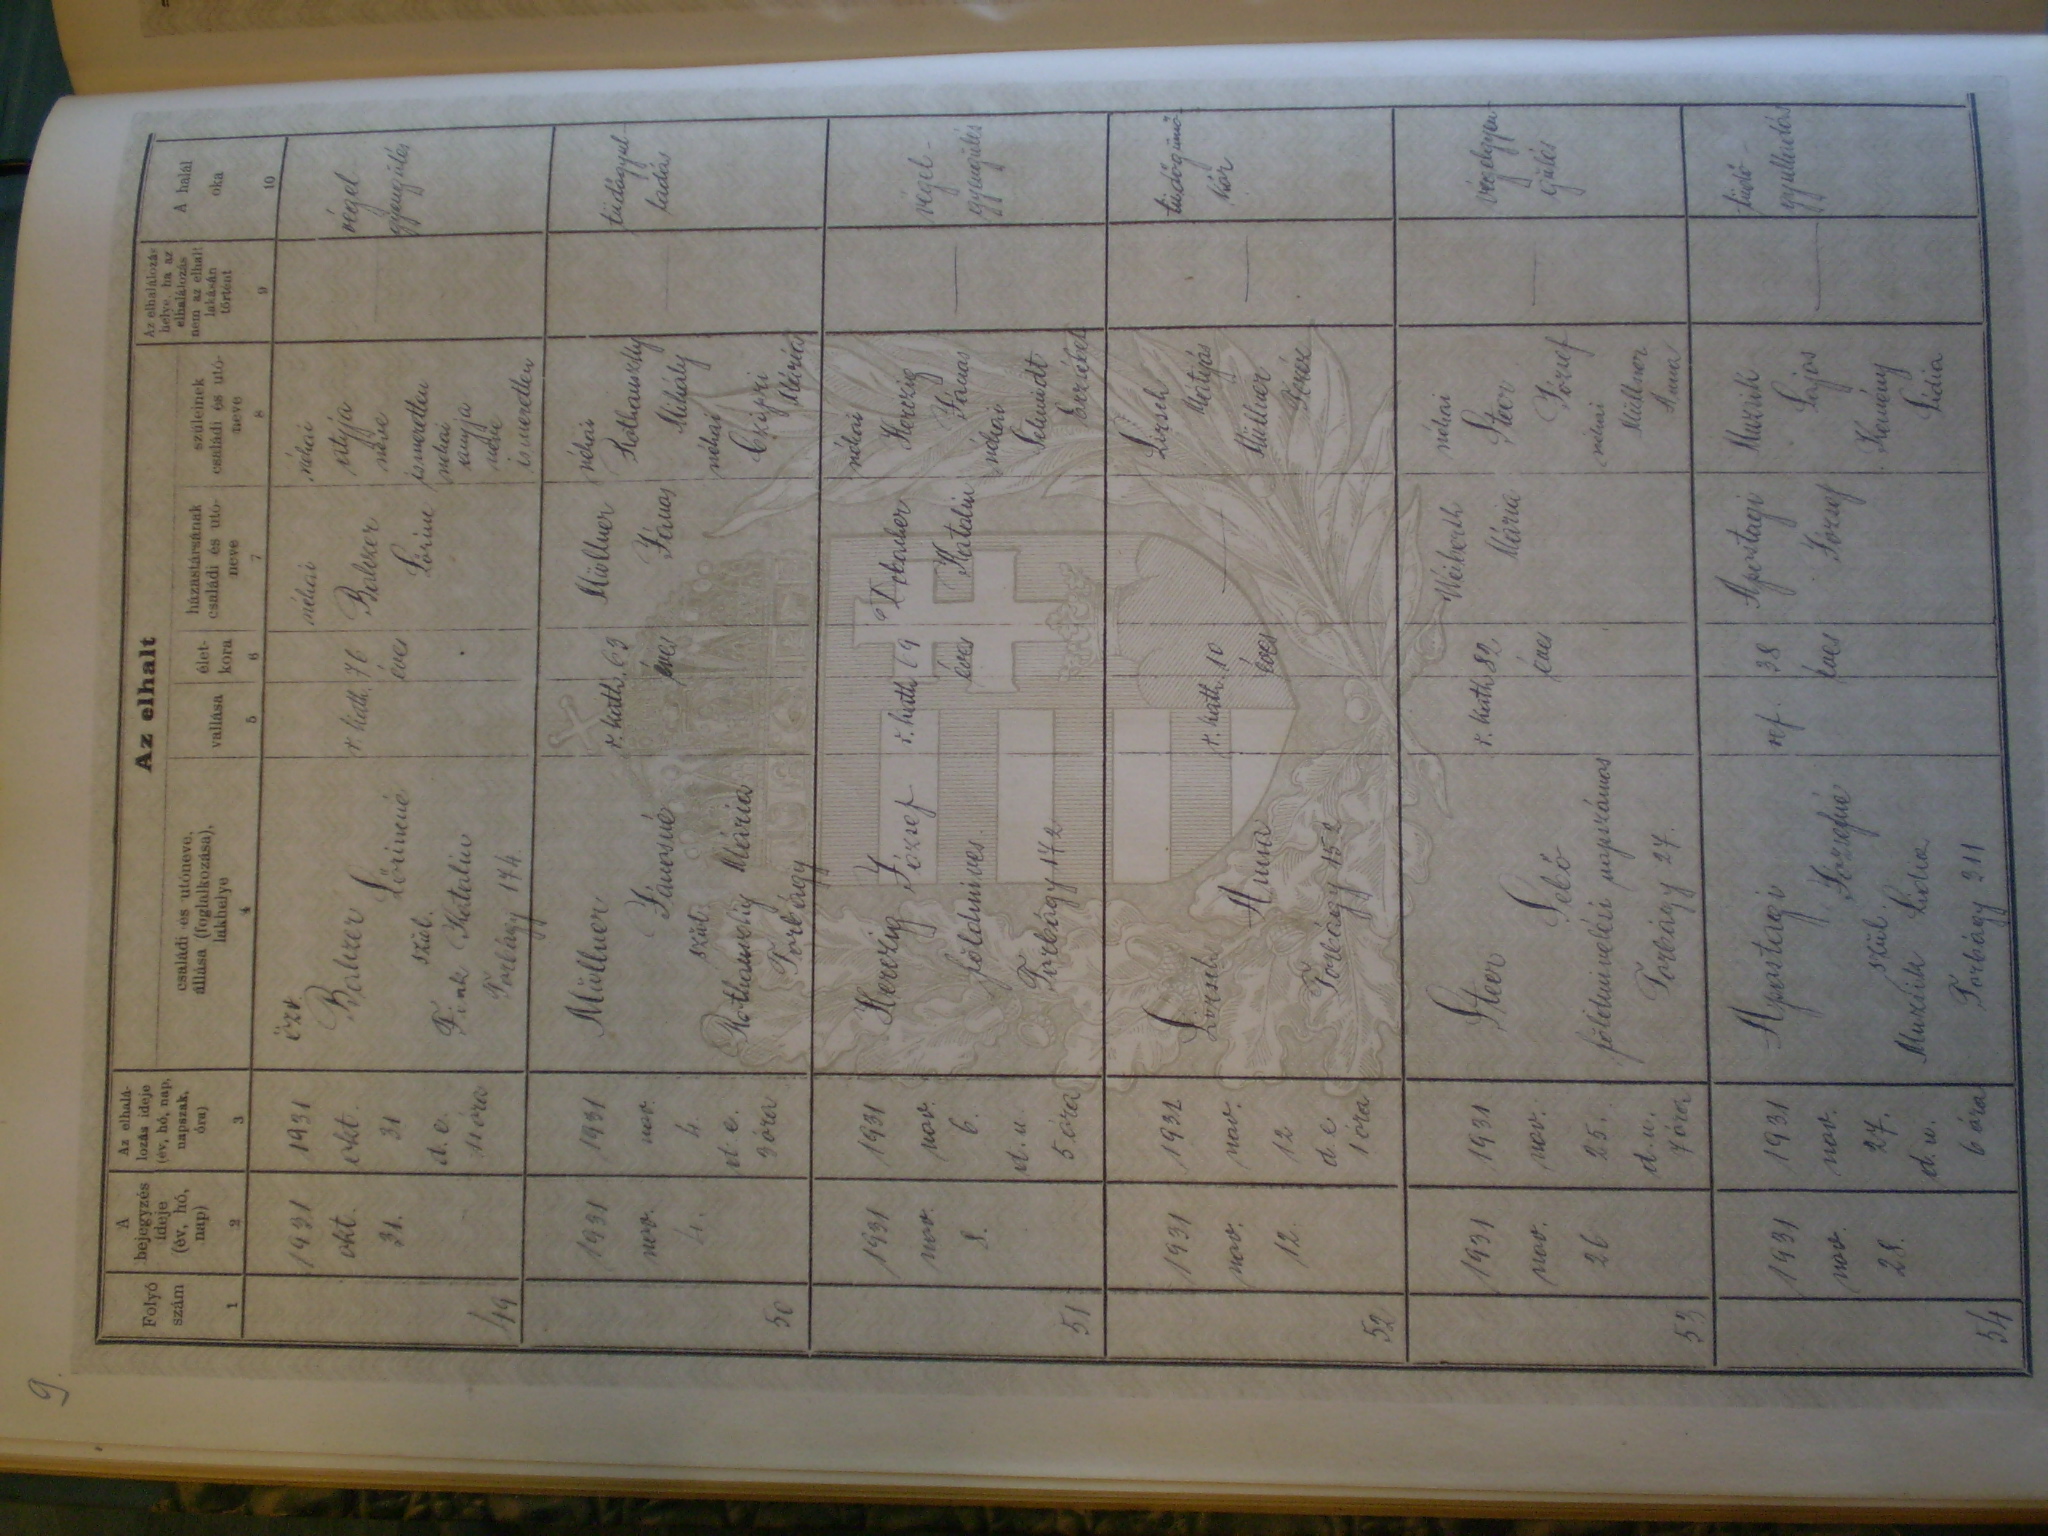 9.
Az elhalt
Folyó
szám
A
bejegyzés
ideje
(év, hó,
nap)
Az elhalá-
lozás ideje
(év, hó, nap,
napszak,
óra)
családi és utóneve,
állása (foglalkozása),
lakhelye
vallása
élet-
kora
házastársának
családi és utó-
neve
szüleinek
családi és utó-
neve
Az elhalálozás
helye, ha az
elhalálozás
nem az elhalt
lakásán
történt
A halál
oka
1
2
3
4
5
6
7
8
9
10
49
1931
okt.
31.
1931
okt.
31
d. e.
11 óra
özv.
Balizer
Lőrincné
szül.
Fink Katalin
Torbágy 174.
r. kath.
76
éves
néhai
Balizer
Lőrinc
néhai
atyja
neve
ismeretlen
néhai
anyja
neve
ismeretlen
végel
gyengülés
50
1931
nov.
4.
1931
nov.
4.
d. e.
3 óra
Müllner
Jánosné
szül.
Rothauszky Mária
Torbágy
r. kath.
63
éves
Müllner
János
néhai
Rothauszky
Mihály
néhai
Czipri
Mária
tüdőgyul-
ladás
51
1931
nov.
8.
1931
nov.
6.
d. u.
5 óra
Herczig
József
földmives
Torbágy 172
r. kath.
69
éves
Katalin
néhai
Herczig
János
néhai
Schmidt
Erzsébet
végel-
gyengülés
52
1931
nov.
12.
1931
nov.
12
d. e.
1 óra
Lirsch
Anna
Torbágy 152
r. kath.
10
éves
Lirsch
Mátyás
Müllner
Teréz
tüdőgümő-
kór
53
1931
nov.
26
1931
nov.
25.
d. u.
7 óra
Steer
földmivelési napszámos
Torbágy 27.
r. kath.
82
éves
Mária
néhai
Steer
József
néhai
Müllner
Anna
végelgyen-
gülés
54
1931
nov.
28.
1931
nov.
27.
d. u.
6 óra
Apostagi
Józsefné
szül.
Muzsik Lidia
Torbágy 211
ref.
38
éves
Apostagi
József
Muzsik
Lajos
Kemény
Lidia
tüdő-
gyulladás